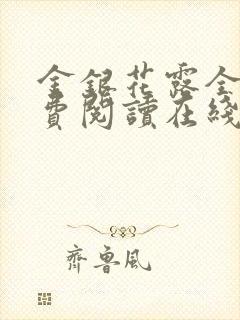 金銀花露全
費閱讀在綫
齊魯風